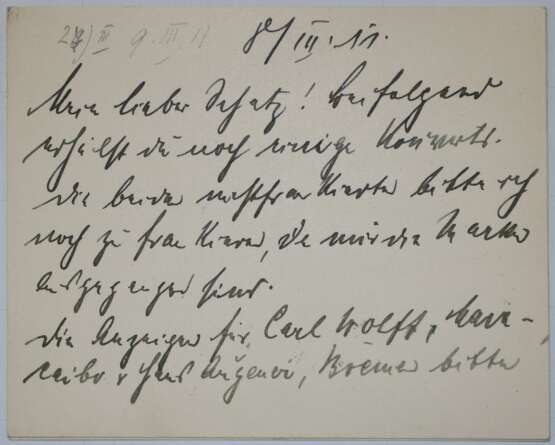 24) III 9.III 11 8/III.11.
Mein lieber Schatz! Beifolgend
erhälst du noch einige Kouverts.
Die beiden nichtfrankierten bitte ich
noch zu frankieren, da mir die Marken
ausgegangen sind.
Die Anzeigen für Carl Wolff, Mara-
caibo & Hans, Bremen bitte